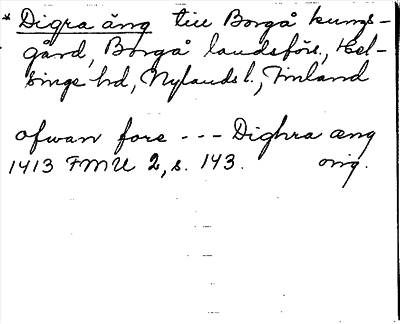 * Digra äng till Borgå kungs-
gård, Borgå landsförs., Hel-
singe hd, Nylands l., Finland
ofwan fore --- Dighra æng
1413 FMU 2, s. 143. orig.